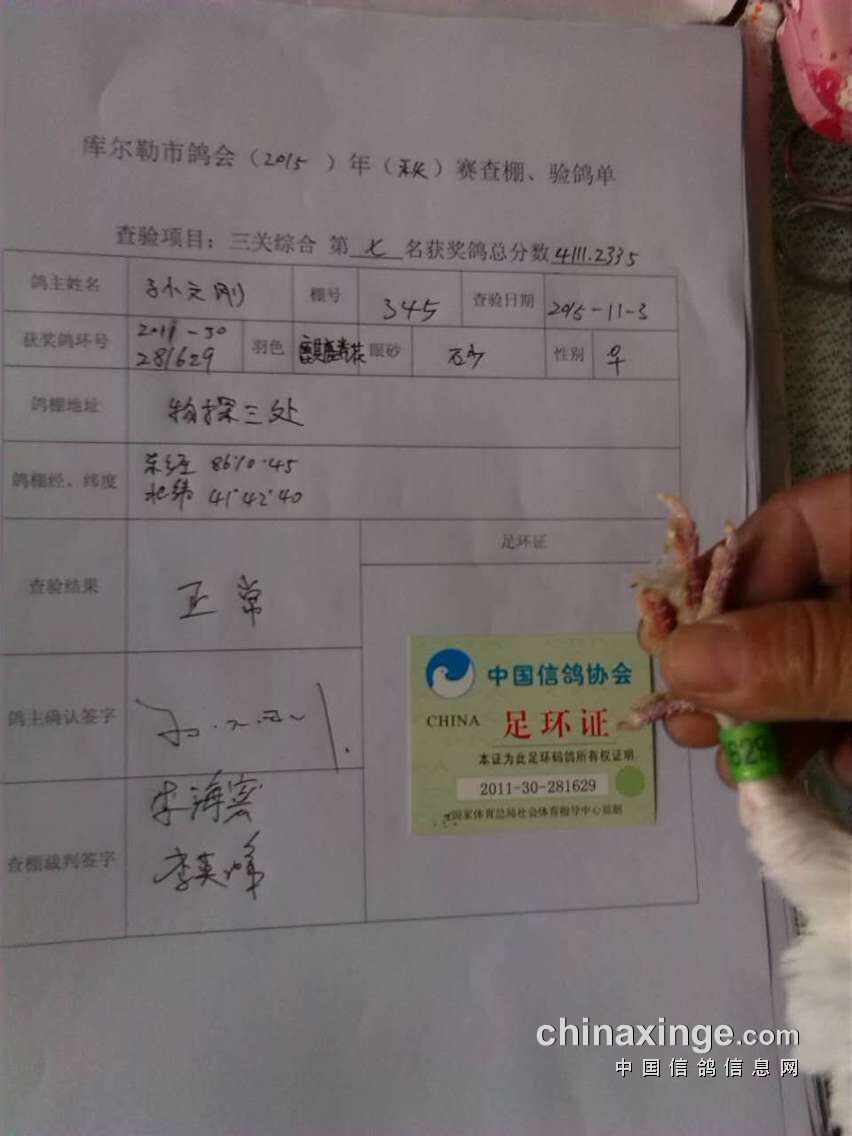 库尔勒市鸽会（2015）年（秋）赛查棚、验鸽单
查验项目：三关综合 第七名获奖鸽总分数4111.2335
鸽主姓名 孙文刚 棚号 345 查验日期 2015-11-3
获奖鸽环号 2011-30 281629 羽色 眼砂 性别 ♀
鸽棚地址 物探三处
鸽棚经、纬度 东经 86°10′45
北纬 41°42′40
查验结果 正常 足环证
鸽主确认签字
查棚裁判签字 李海
李英峰
中国信鸽协会
CHINA 足环证
本证为此足环码鸽所有权证明
2011-30-281629
国家体育总局社会体育指导中心监制
629
chinaxinge.com
中国信鸽信息网